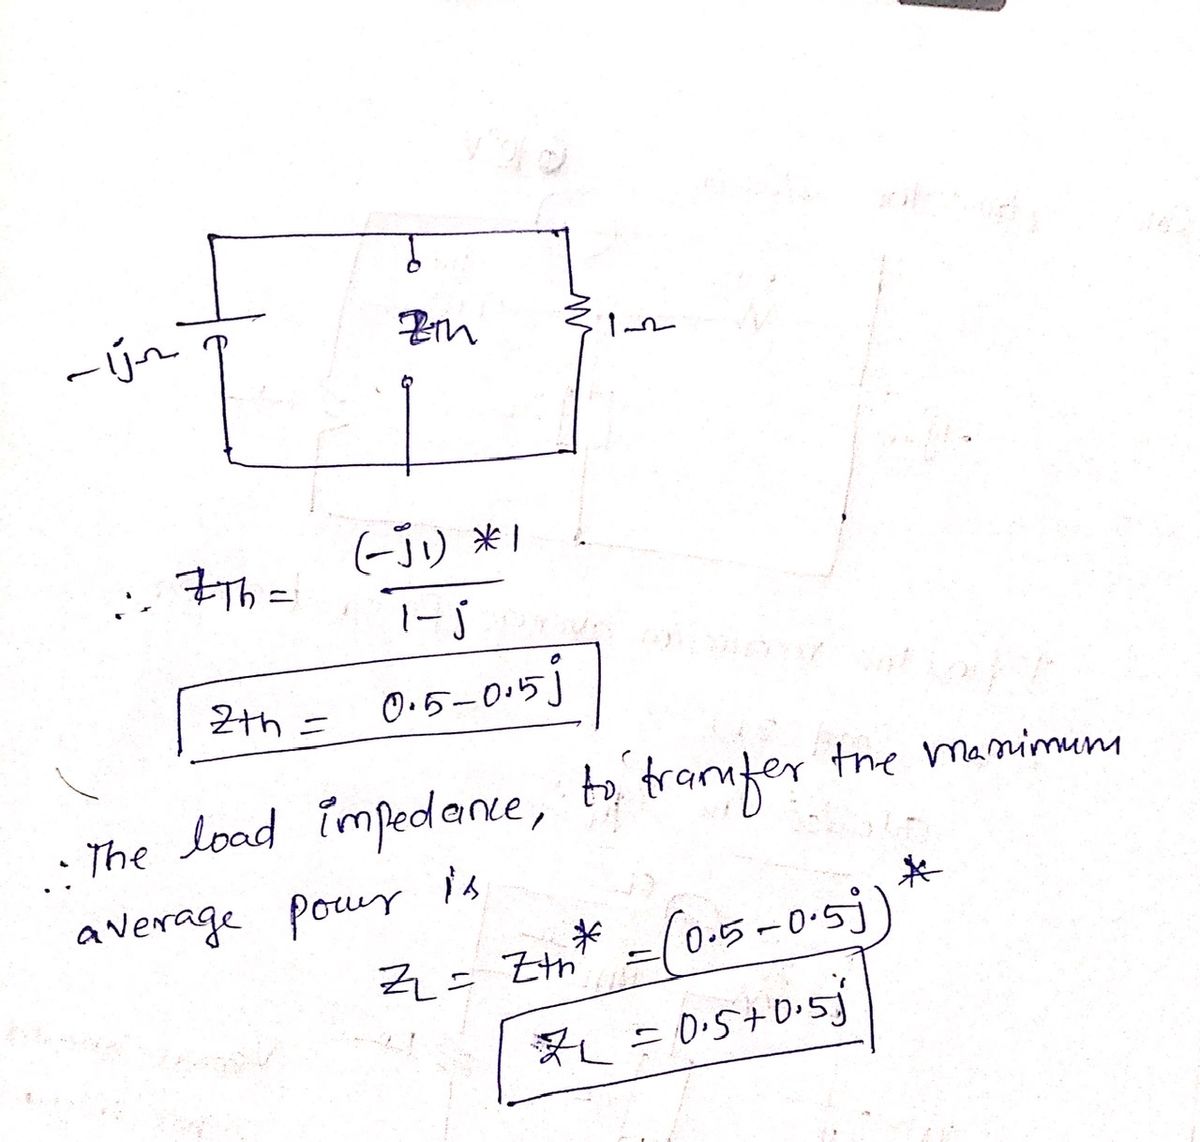 -1jΩ
Zth
1Ω
∴ ZTh = (-j1) *1 / 1-j
Zth = 0.5-0.5j
∴ The load impedance, to transfer the maximum
average power is
ZL = Zth* = (0.5-0.5j)*
ZL = 0.5+0.5j